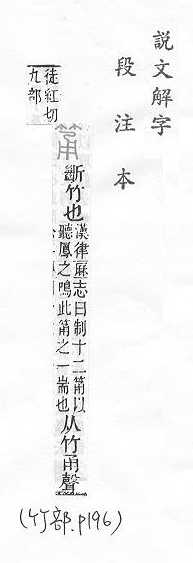 說文解字
段注本
筩斷竹也
漢律厤志曰制十二筩以
聽鳳之鳴此筩之一耑也
从竹甬聲
徒紅切
九部
(竹部.p196)